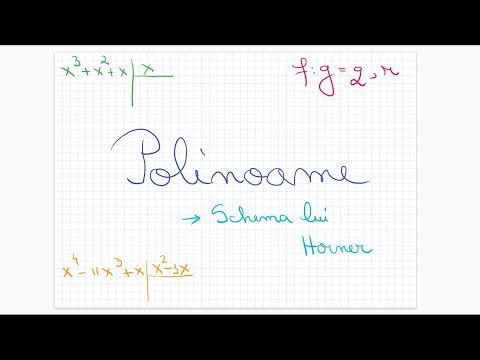 x³+x²+x | x
f:g=q,r
Polinoame
→ Schema lui
Horner
x⁴-11x³+x | x²-3x